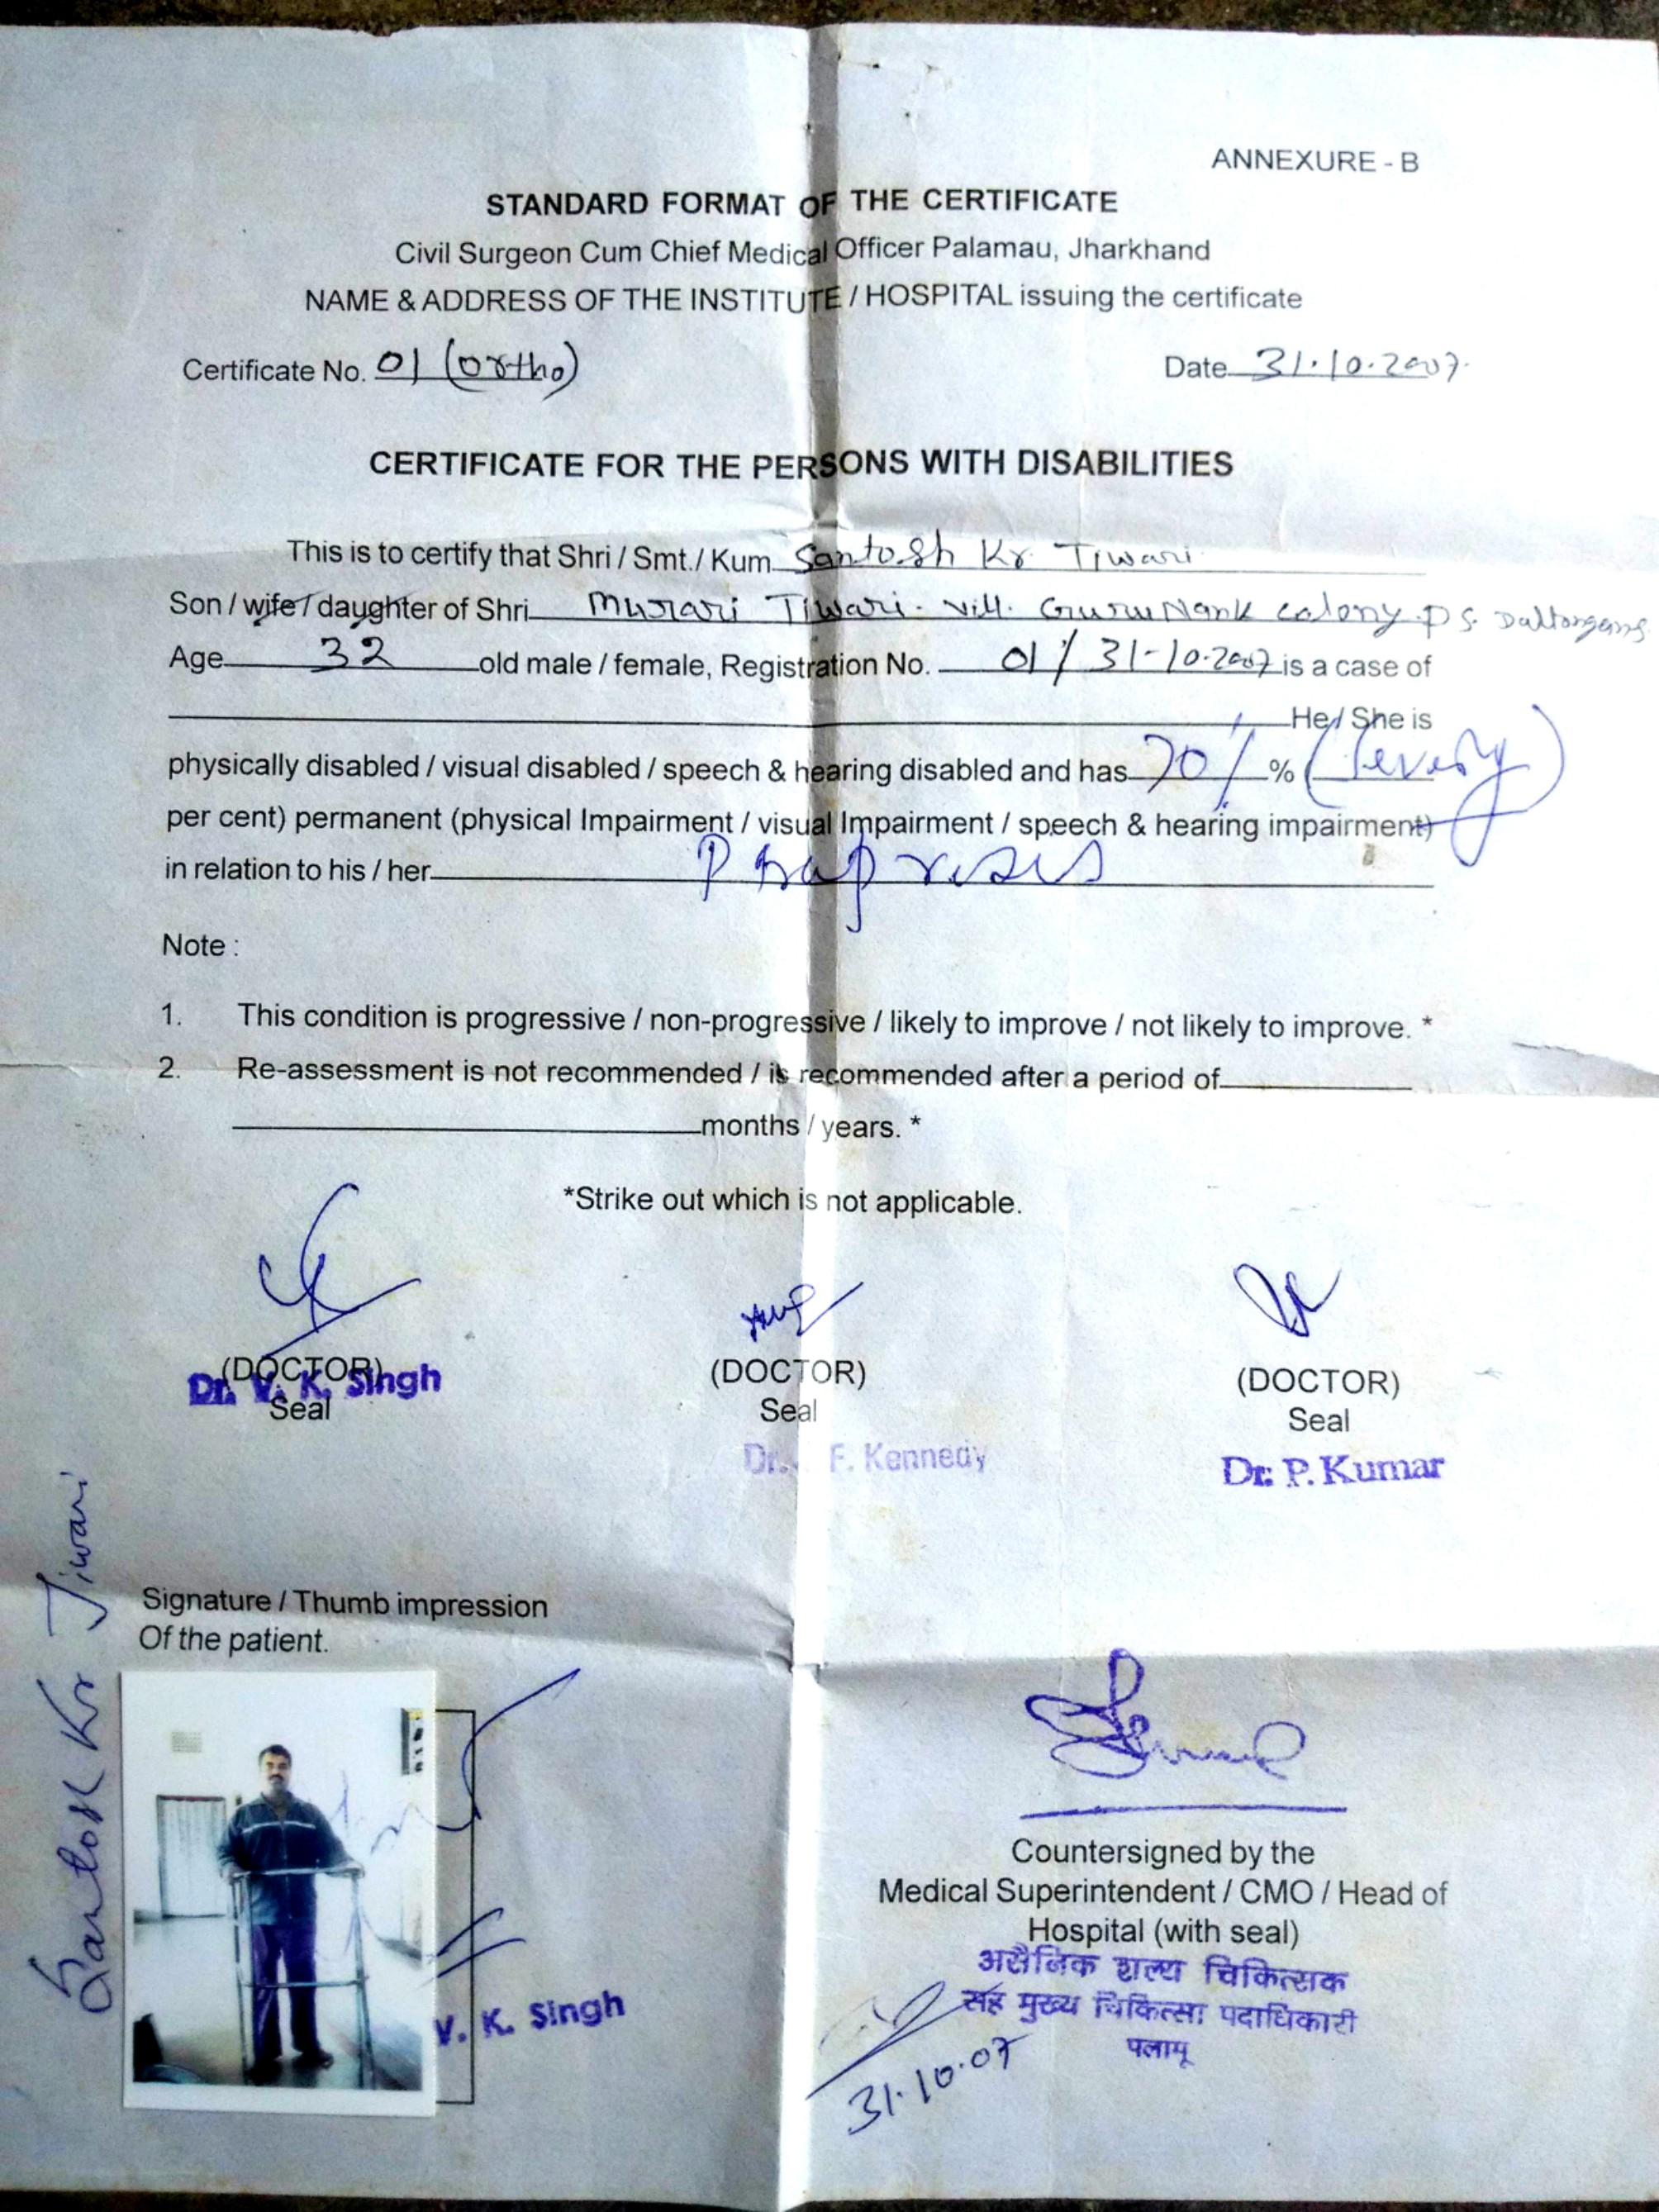 ANNEXURE - B
STANDARD FORMAT OF THE CERTIFICATE
Civil Surgeon Cum Chief Medical Officer Palamau, Jharkhand
NAME & ADDRESS OF THE INSTITUTE / HOSPITAL issuing the certificate
Certificate No. 01 (ortho) Date 31.10.2007.
CERTIFICATE FOR THE PERSONS WITH DISABILITIES
This is to certify that Shri / Smt./ Kum Santosh Kr Tiwari
Son / wife / daughter of Shri Murari Tiwari. vill. GuruNank colony. P S. Daltonganj
Age 32 old male / female, Registration No. 01 / 31-10.2007 is a case of
He / She is
physically disabled / visual disabled / speech & hearing disabled and has 70% % (
per cent) permanent (physical Impairment / visual Impairment / speech & hearing impairment)
in relation to his / her
Note :
1. This condition is progressive / non-progressive / likely to improve / not likely to improve. *
2. Re-assessment is not recommended / is recommended after a period of
months / years. *
*Strike out which is not applicable.
(DOCTOR) (DOCTOR) (DOCTOR)
Dr. V. K. Singh
Seal Seal Seal
Dr. F. Kennedy Dr. P. Kumar
Santosh Kr Tiwari
Signature / Thumb impression
Of the patient.
V. K. Singh
Countersigned by the
Medical Superintendent / CMO / Head of
Hospital (with seal)
असैनिक शल्य चिकित्सक
सह मुख्य चिकित्सा पदाधिकारी
पलामू
31.10.07